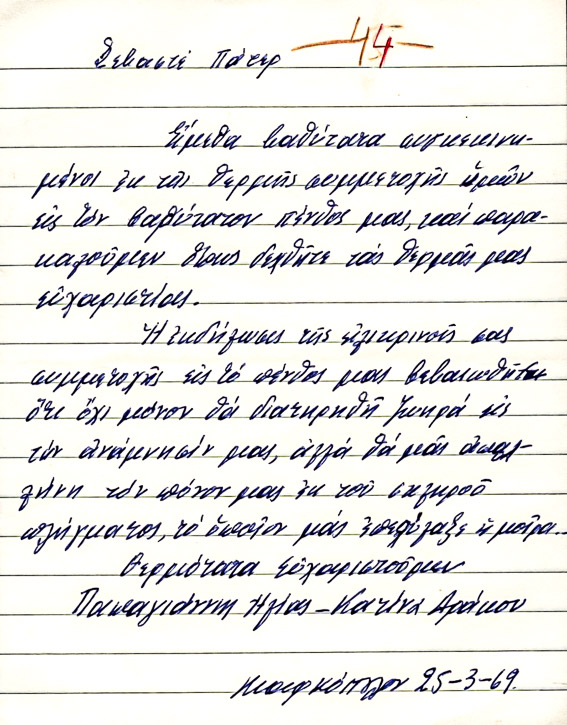 Σεβαστέ Πάτερ 44
Εἴμεθα βαθύτατα συγκεκινη-
μένοι ἐκ τῆς θερμῆς συμμετοχῆς ὑμῶν
εἰς τὸν βαθύτατον πένθος μας, καί παρα-
καλοῦμεν ὅπως δεχθῆτε τάς θερμάς μας
εὐχαριστίας.
Ἡ ἐκδήλωσις τῆς εἰλικρινοῦς σας
συμμετοχῆς εἰς τό πένθος μας βεβαιωθῆτε
ὅτι ὄχι μόνον θά διατηρηθῆ ζωηρά εἰς
τήν ἀνάμνησίν μας, ἀλλά θά μᾶς ἀπαλ-
λύνη τόν πόνον μας ἐκ τοῦ σκληροῦ
πλήγματος, τό ὁποῖον μᾶς ἐπεφύλαξε ἡ μοῖρα..
Θερμότατα εὐχαριστοῦμεν
Παπαγιάννη Ηλίας - Κατίνα Δράκου
25-3-69.